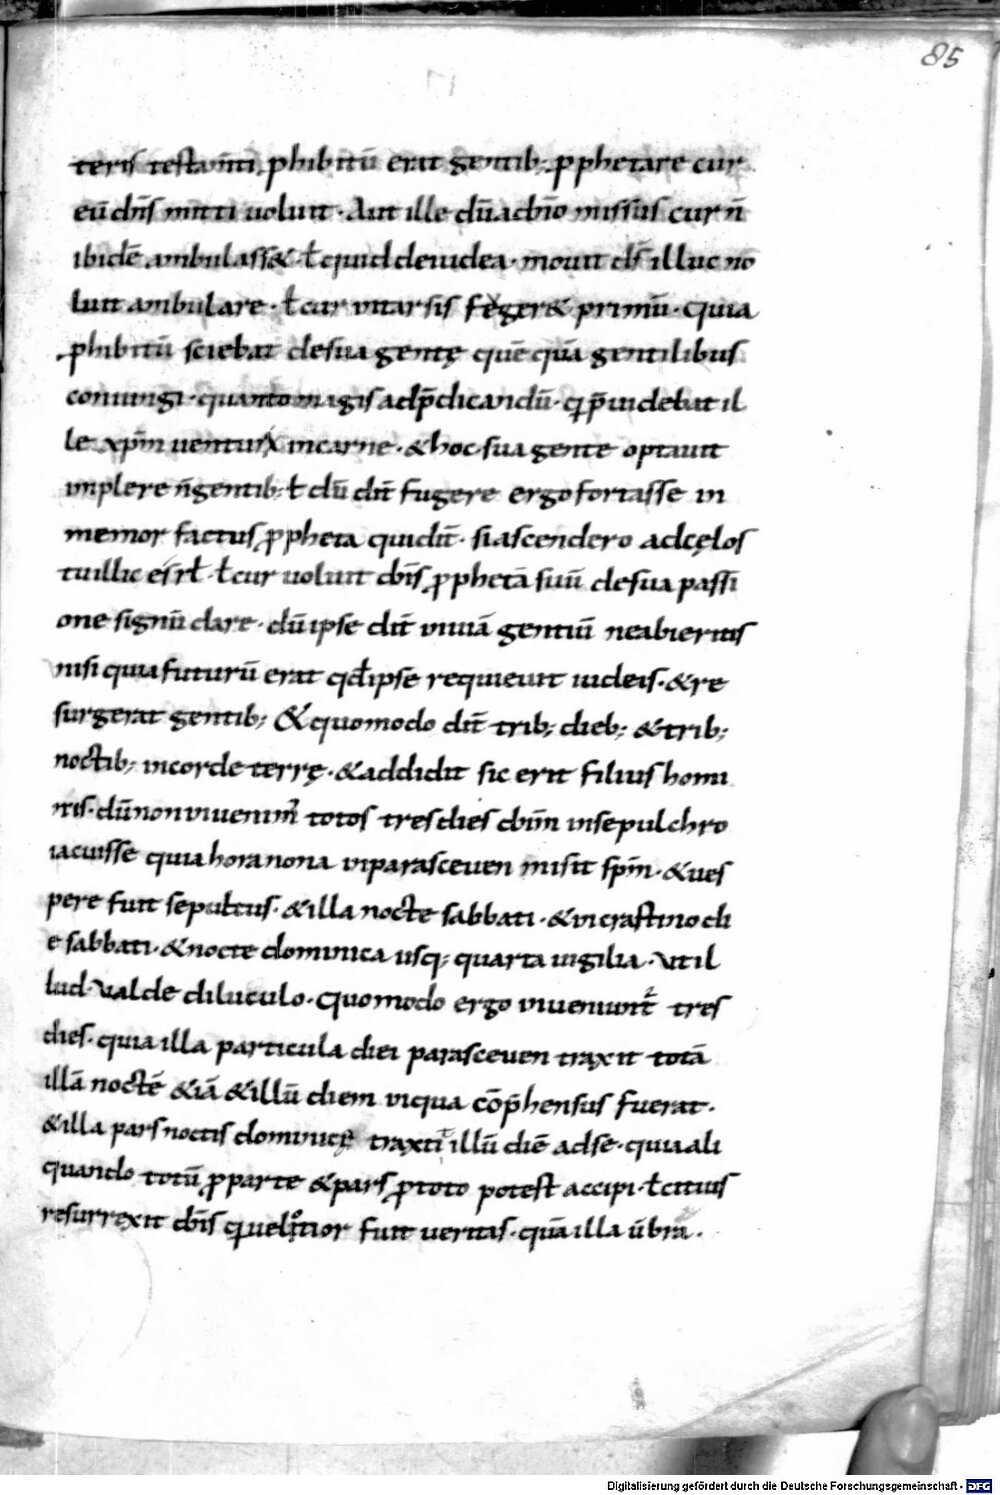 85
teris testam̄ti ꝓhibitū erat gentib; ꝓphetare cur
eū dn̄s mitti uoluit · Aut ille dū a dn̄o missus cur n̄
ibidē ambulass& · ł quid de iudea · mouit dn̄s illuc no
luit ambulare · ł cur uitar sis feger& primū · quia
ꝓhibitū sciebat de sua gentę quē quā gentilibus
coniungi · quanto magis ad p̄dicandū · q p̄uidebat il
le xp̄m uenturū in carne · & hoc sua gente optauit
implere n̄ gentib; ł dū dn̄t fugere ergo fortasse in
memor factus ꝓpheta quidn̄t · si ascendero ad cęlos
tu illic es rł · ł cur uoluit dn̄s ꝓphetā suū de sua passi
one signū dare · dū ipse dn̄t in uiā gentiū ne abieritis
nisi quia futurū erat qđ ipse requieuit iudeis · & re
surgerat gentib; & quomodo dn̄t trib; dieb; & trib;
noctib; in corde terrę · & addidit sic erit filius homi
nis · dū non inuenim᷒ totos tres dies dn̄m in sepulchro
iacuisse quia hora nona in parasceuen misit sp̄m · & ues
pere fuit sepultus · & illa nocte sabbati · & in crastino di
e sabbati · & nocte dominica usq; quarta uigilia · ut il
lud · ualde diluculo · quomodo ergo inueniunt᷒ tres
dies · quia illa particula diei parasceuen traxit totā
illā noctē & iā & illū diem in qua cōp̄hensus fuerat ·
& illa pars noctis dominicę traxit illū diē ad se · quia ali
quando totū ꝓ parte & pars ꝓ toto potest accipi · ł citius
resurrexit dn̄s q uelotior fuit ueritas · quā illa ūbra ·
Digitalisierung gefördert durch die Deutsche Forschungsgemeinschaft - DFG